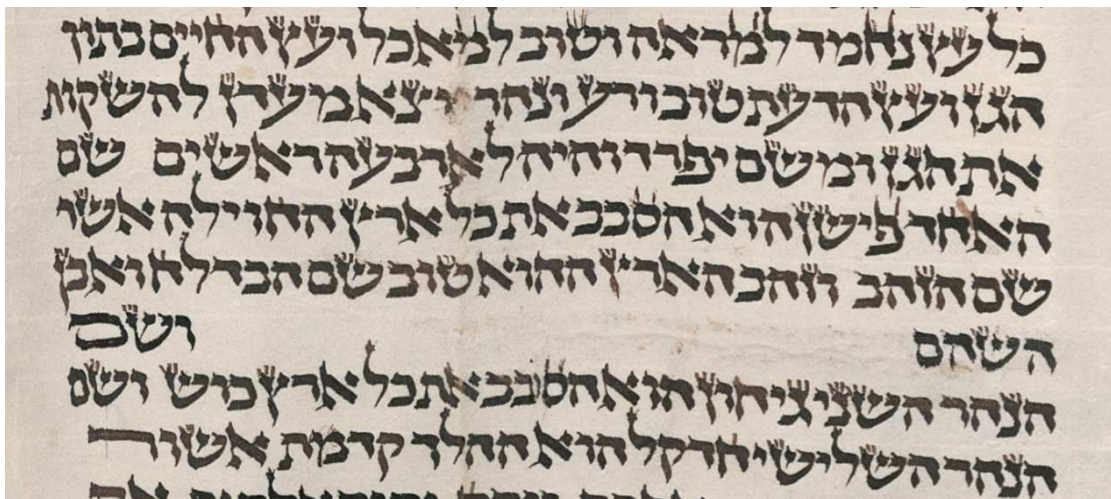 כל עץ נחמד למראה וטוב למאכל ועץ החיים בתוך
הגן ועץ הדעת טוב ורע ונהר יצא מעדן להשקות
את הגן ומשם יפרד והיה לארבעה ראשים שם
האחד פישון הוא הסבב את כל ארץ החוילה אשר
שם הזהב וזהב הארץ ההוא טוב שם הבדלח ואבן
השהם ושם
הנהר השני גיחון הוא הסובב את כל ארץ כוש ושם
הנהר השלישי חדקל הוא ההלך קדמת אשור